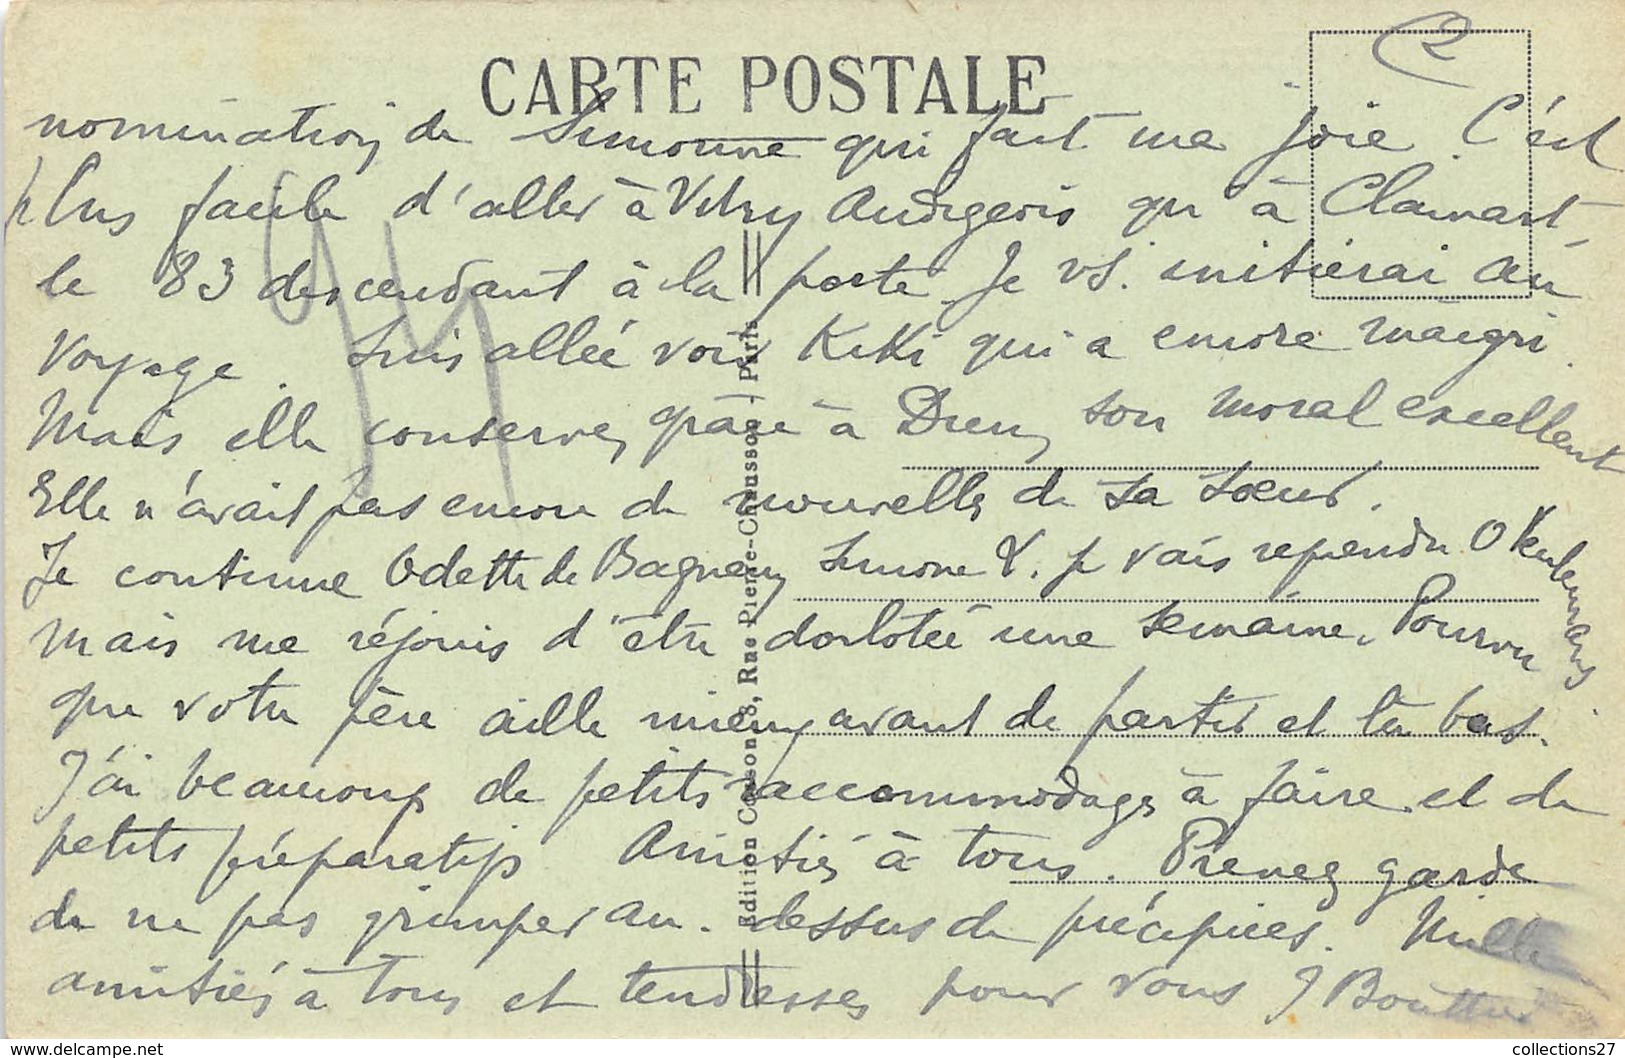 CARTE POSTALE
nomination de Simonne qui fait ma joie. C'est
plus facile d'aller à Vitry Audigeois qu'à Clamart,
le 83 descendant à la porte. Je vs. initierai au
voyage. Suis allée voir Kiki qui a encore maigri.
Mais elle conserve, grâce à Dieu, son moral excellent
Elle n'avait pas encore de nouvelles de sa soeur.
Je continue Odette de Bagneux, Simone L. je vais rependre
mais me réjouis d'être dorlotée une semaine. Pourvu
que votre père aille mieux avant de partir et là bas.
J'ai beaucoup de petits raccommodages à faire et de
petits préparatifs Amitiés à tous. Prenez garde
de ne pas grimper au-dessus de précipices. Mille
amitiés à tous et tendresses pour vous J
Edition C 8, Rue Pierre-Chausson - Paris
collections27